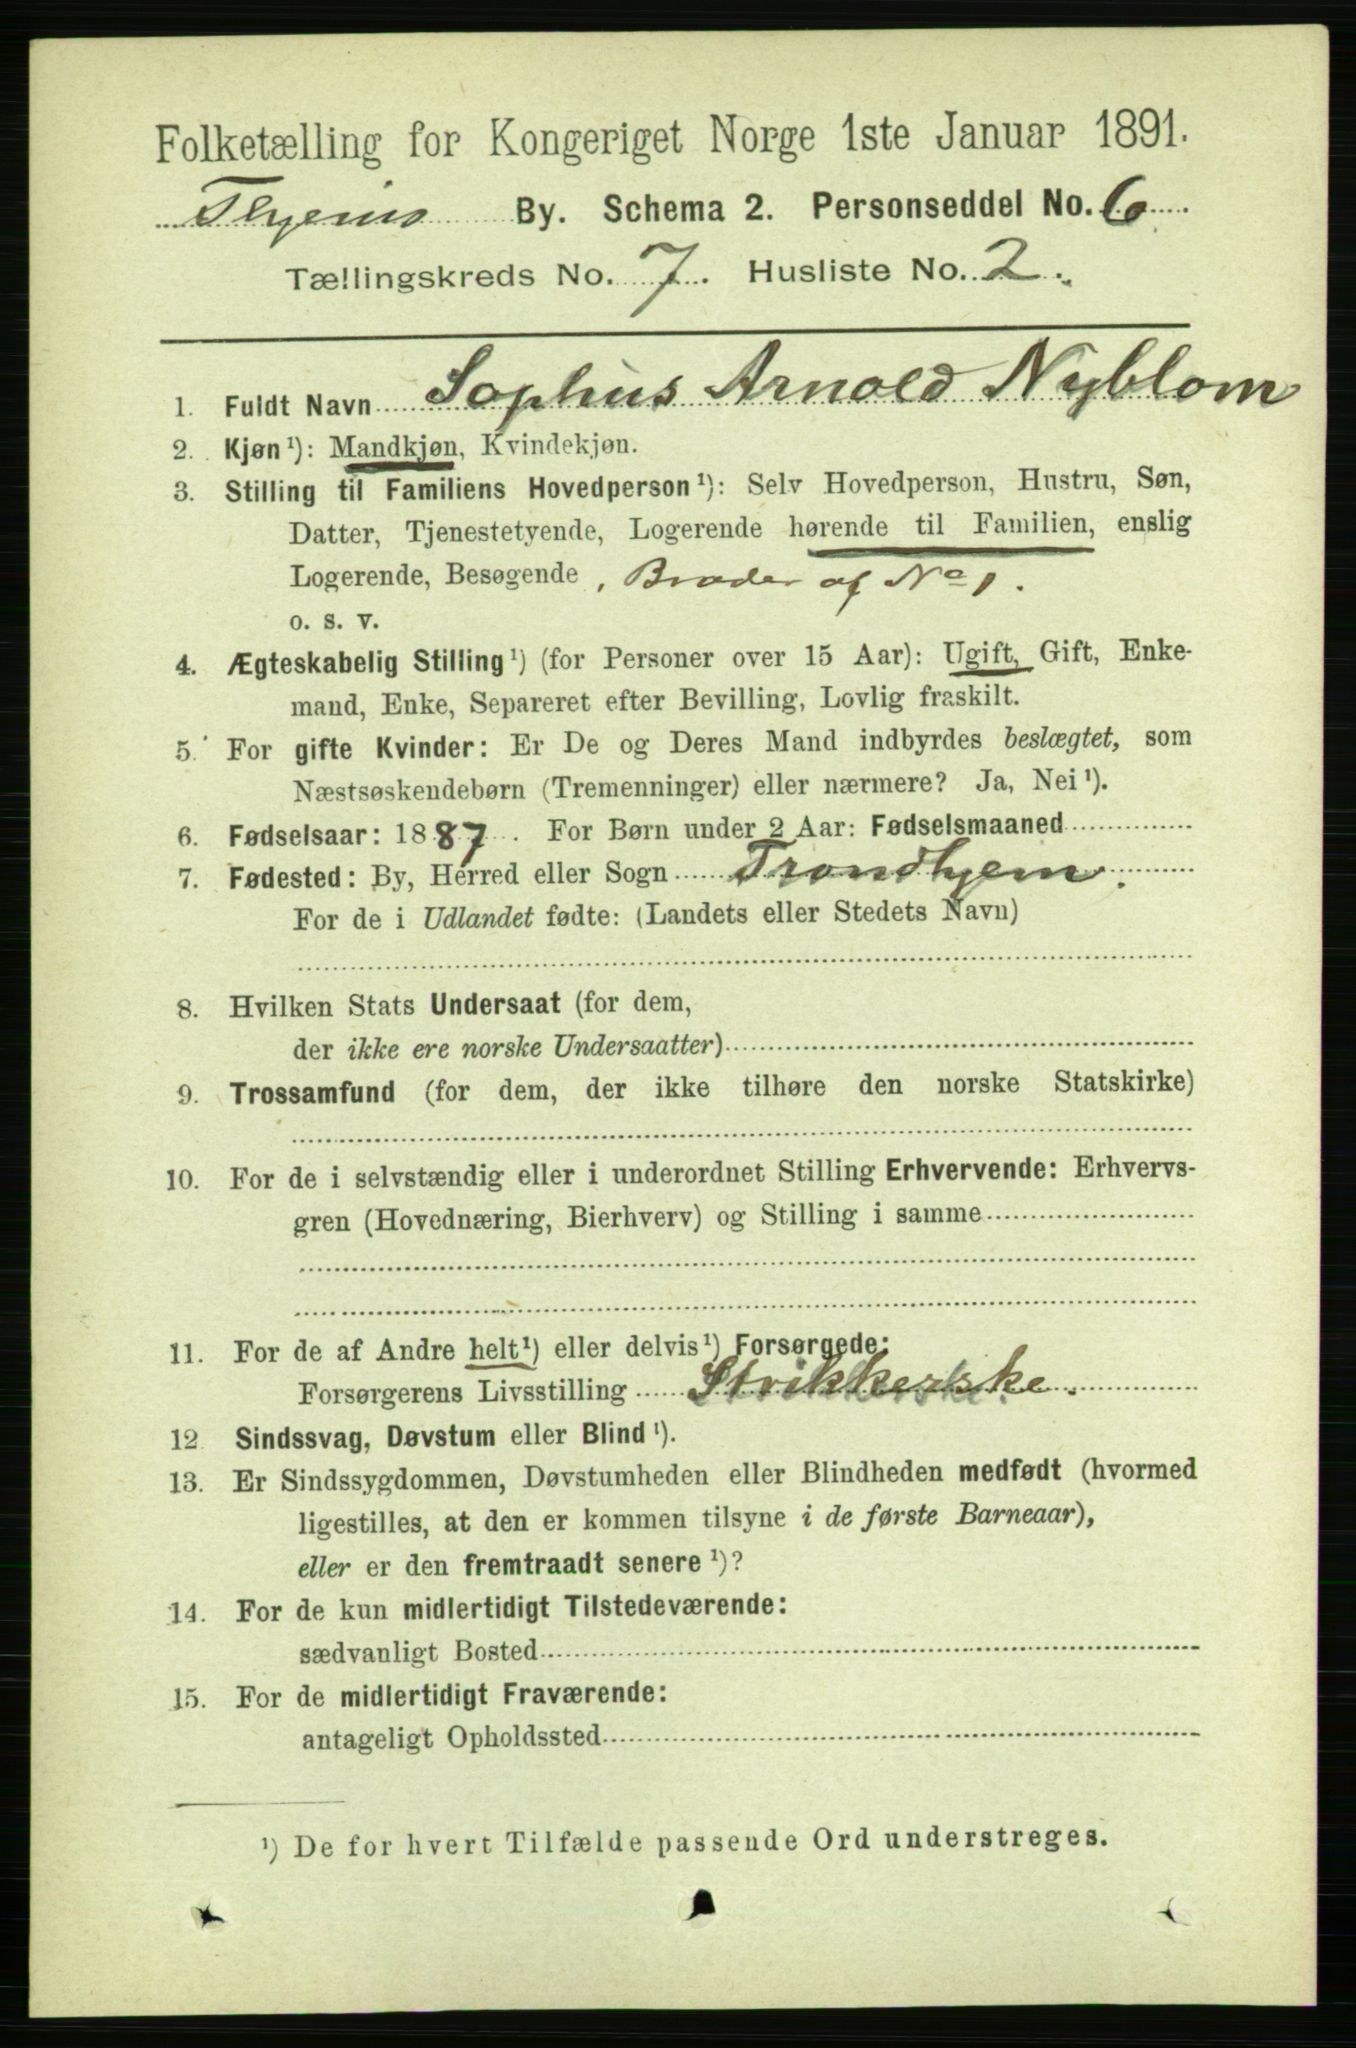 Folketælling for Kongeriget Norge 1ste Januar 1891.
By. Schema 2. Personseddel No. 6
Tællingskreds No. 7. Husliste No. 2.
1. Fuldt Navn Sophus Arnold Nyblom
2. Kjøn¹): Mandkjøn, Kvindekjøn.
3. Stilling til Familiens Hovedperson¹): Selv Hovedperson, Hustru, Søn,
Datter, Tjenestetyende, Logerende hørende til Familien, enslig
Logerende, Besøgende, Broder af No 1.
o. s. v.
4. Ægteskabelig Stilling¹) (for Personer over 15 Aar): Ugift, Gift, Enke-
mand, Enke, Separeret efter Bevilling, Lovlig fraskilt.
5. For gifte Kvinder: Er De og Deres Mand indbyrdes beslægtet, som
Næstsøskendebørn (Tremenninger) eller nærmere? Ja, Nei¹).
6. Fødselsaar: 1887. For Børn under 2 Aar: Fødselsmaaned
7. Fødested: By, Herred eller Sogn Trondhjem.
For de i Udlandet fødte: (Landets eller Stedets Navn)
8. Hvilken Stats Undersaat (for dem,
der ikke ere norske Undersaatter)
9. Trossamfund (for dem, der ikke tilhøre den norske Statskirke)
10. For de i selvstændig eller i underordnet Stilling Erhvervende: Erhvervs-
gren (Hovednæring, Bierhverv) og Stilling i samme
11. For de af Andre helt¹) eller delvis¹) Forsørgede:
Forsørgerens Livsstilling Strikkerske.
12 Sindssvag, Døvstum eller Blind¹).
13. Er Sindssygdommen, Døvstumheden eller Blindheden medfødt (hvormed
ligestilles, at den er kommen tilsyne i de første Barneaar),
eller er den fremtraadt senere¹)?
14. For de kun midlertidigt Tilstedeværende:
sædvanligt Bosted
15. For de midlertidigt Fraværende:
antageligt Opholdssted
¹) De for hvert Tilfælde passende Ord understreges.